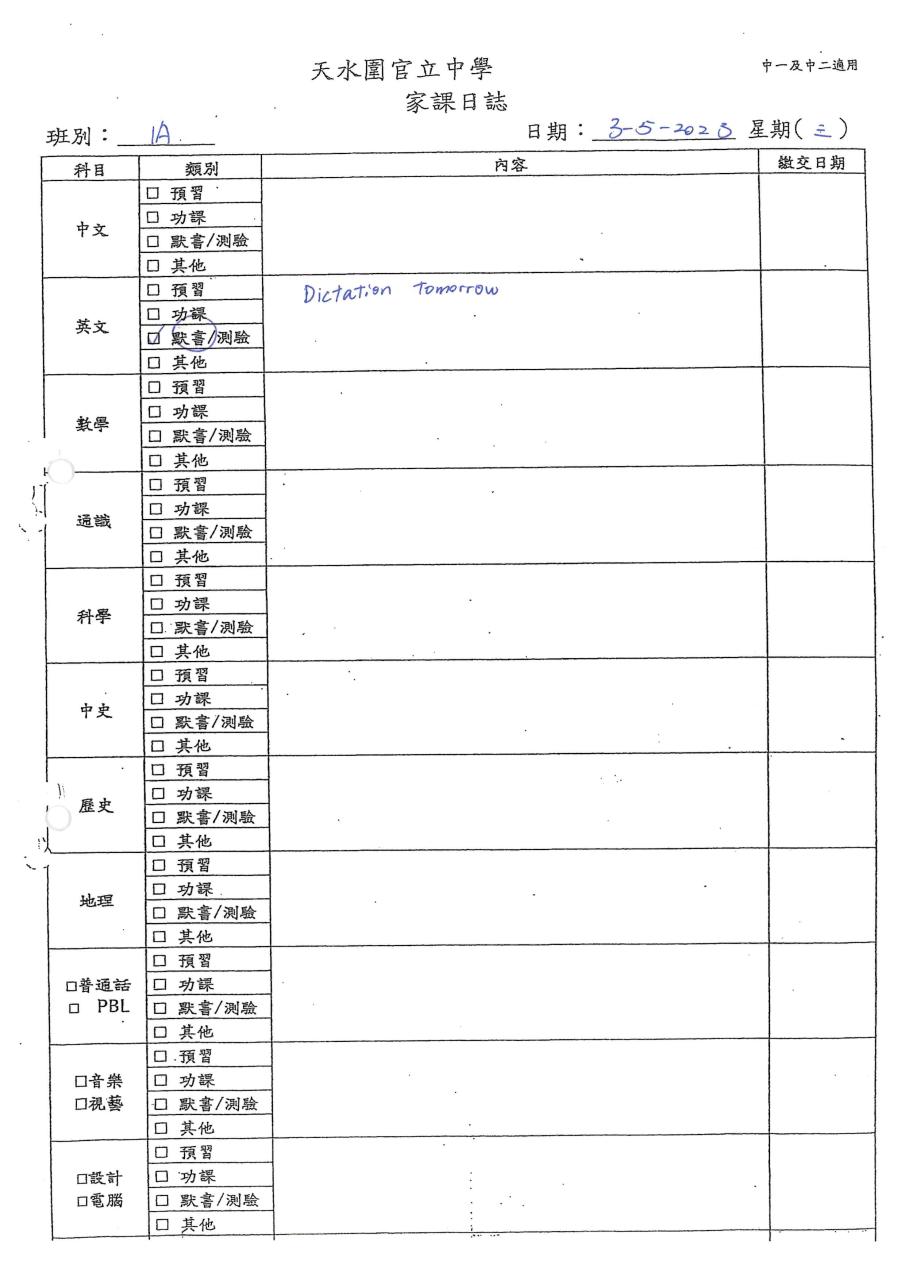 天水圍官立中學
中一及中二適用
家課日誌
班別： 1A 日期： 3-5-2023 星期(三)
科目 類別 內容 繳交日期
中文
□ 預習
□ 功課
□ 默書/測驗
□ 其他
英文
□ 預習 Dictation Tomorrow
□ 功課
☑ 默書/測驗
□ 其他
數學
□ 預習
□ 功課
□ 默書/測驗
□ 其他
通識
□ 預習
□ 功課
□ 默書/測驗
□ 其他
科學
□ 預習
□ 功課
□ 默書/測驗
□ 其他
中史
□ 預習
□ 功課
□ 默書/測驗
□ 其他
歷史
□ 預習
□ 功課
□ 默書/測驗
□ 其他
地理
□ 預習
□ 功課
□ 默書/測驗
□ 其他
□普通話
□ PBL
□ 預習
□ 功課
□ 默書/測驗
□ 其他
□音樂
□視藝
□ 預習
□ 功課
□ 默書/測驗
□ 其他
□設計
□電腦
□ 預習
□ 功課
□ 默書/測驗
□ 其他